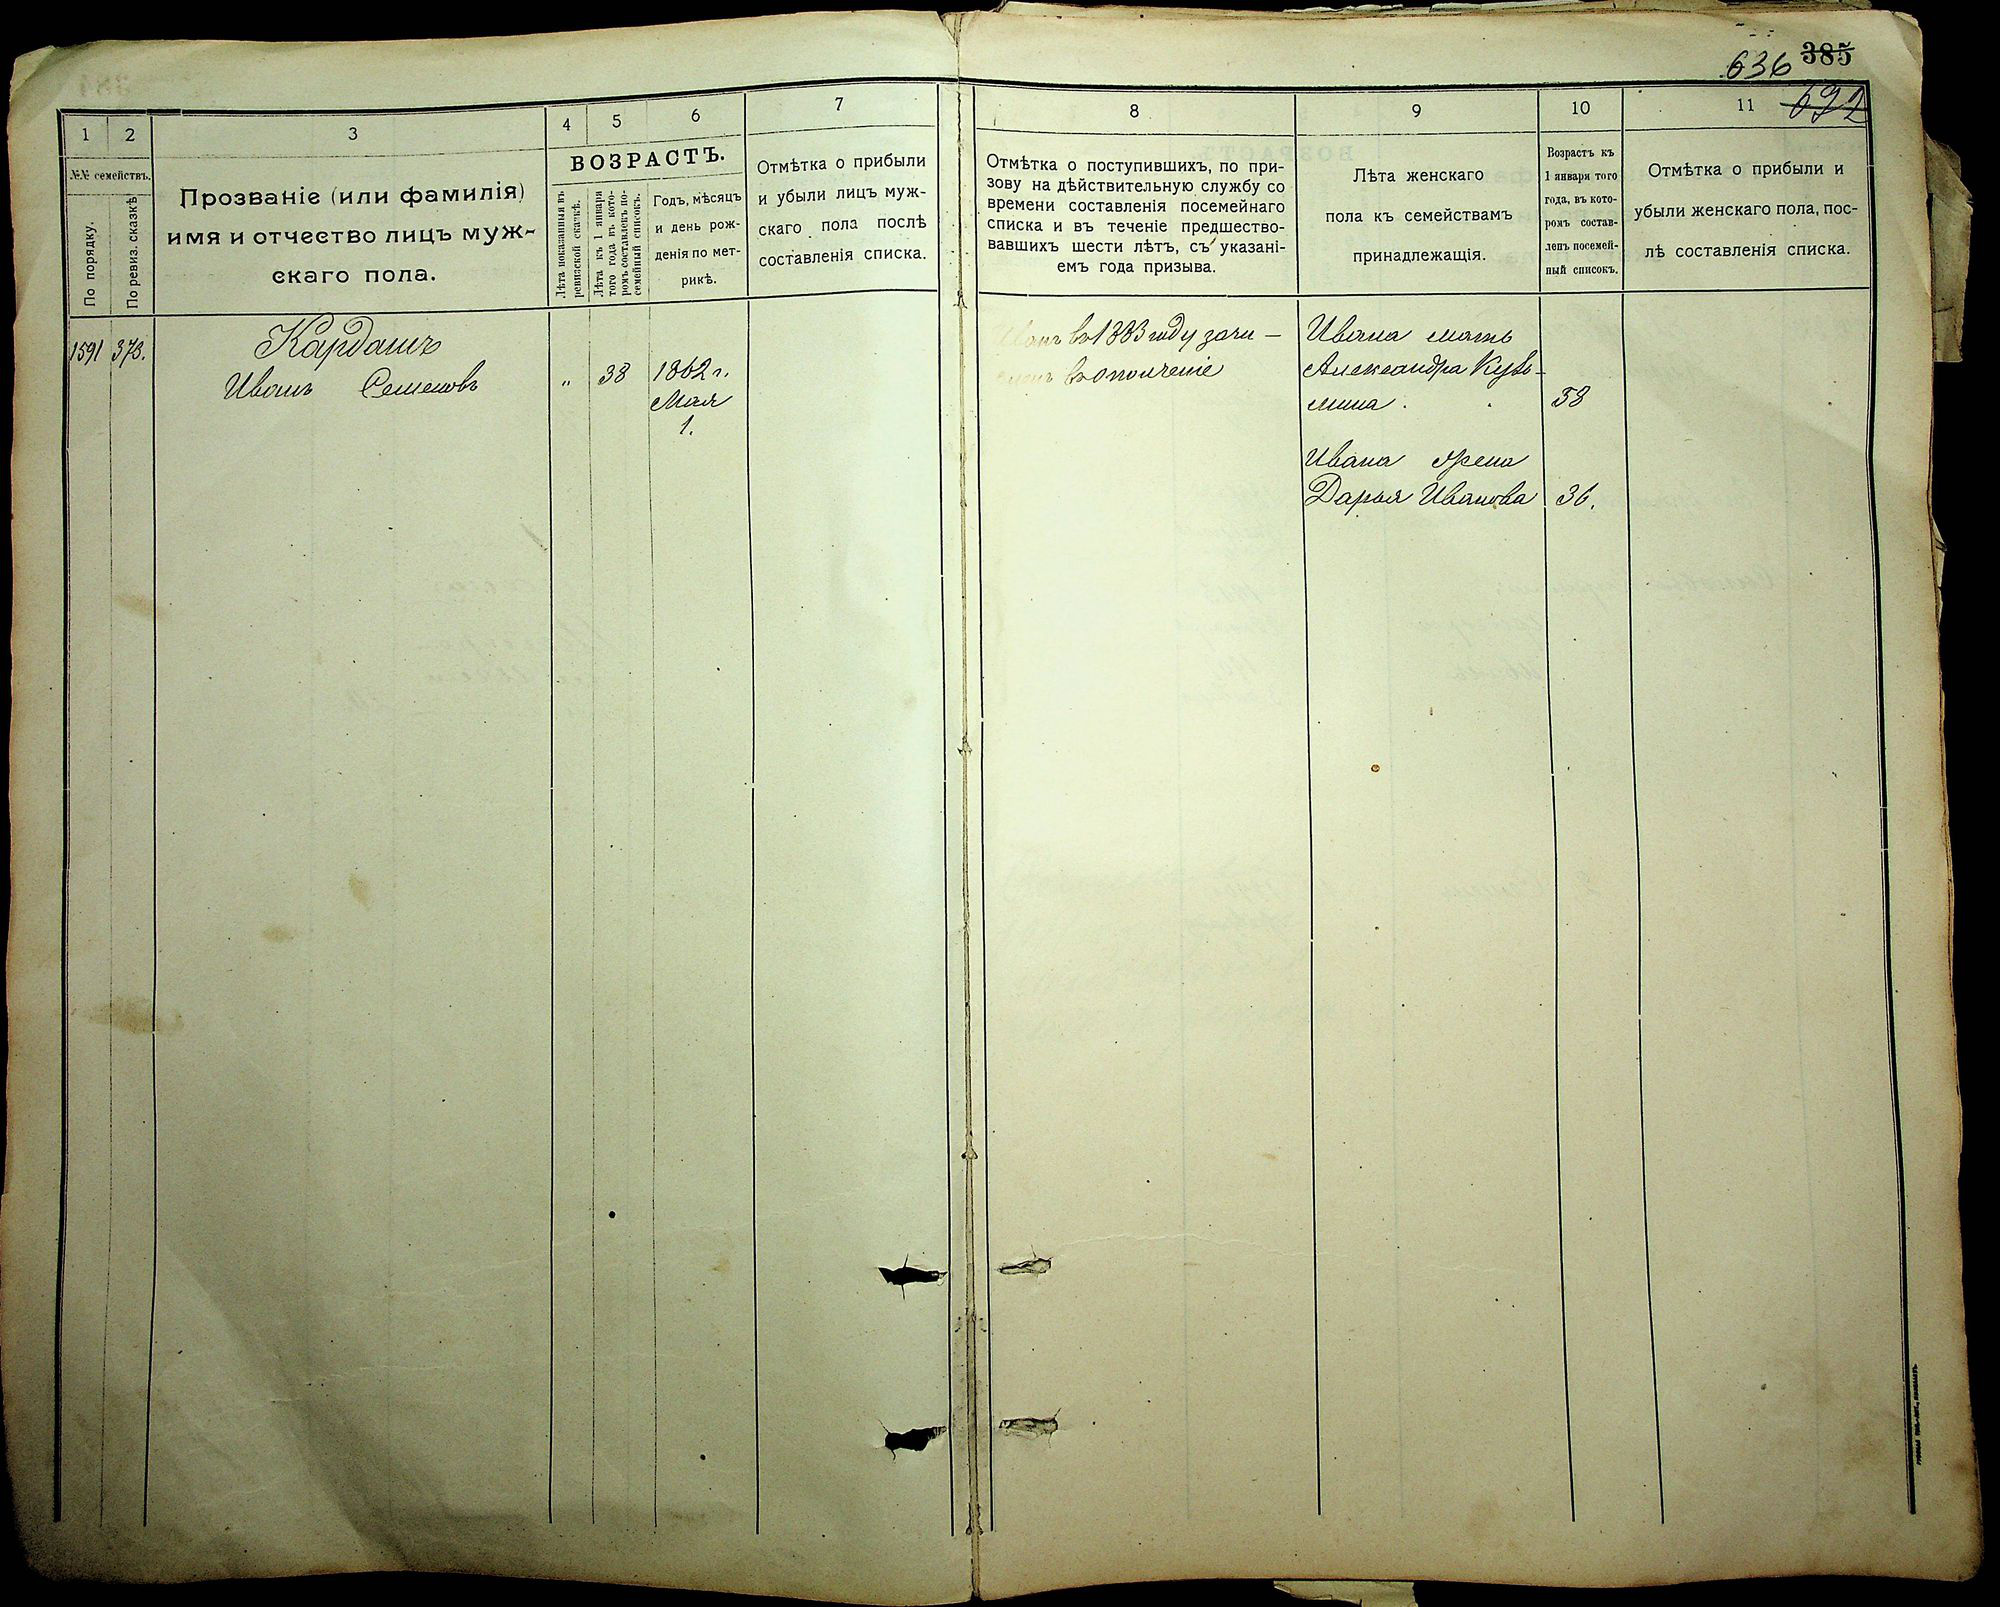 385
636
692
1
2
3
4
5
6
7
8
9
10
11
№№ семействъ.
По порядку.
По ревиз. сказкѣ
Прозваніе (или фамилія)
имя и отчество лицъ муж-
скаго пола.
ВОЗРАСТЪ.
Лѣта показанныя въ
ревизской сказкѣ.
Лѣта къ 1 января
того года въ кото-
ромъ составленъ по-
семейный списокъ.
Годъ, мѣсяцъ
и день рож-
денія по мет-
рикѣ.
Отмѣтка о прибыли
и убыли лицъ муж-
скаго пола послѣ
составленія списка.
Отмѣтка о поступившихъ, по при-
зову на дѣйствительную службу со
времени составленія посемейнаго
списка и въ теченіе предшество-
вавшихъ шести лѣтъ, съ указані-
емъ года призыва.
Лѣта женскаго
пола къ семействамъ
принадлежащія.
Возрастъ къ
1 января того
года, въ кото-
ромъ состав-
ленъ посемей-
ный списокъ.
Отмѣтка о прибыли и
убыли женскаго пола, пос-
лѣ составленія списка.
1591 373.
Кардашъ
Иванъ Семеновъ
„ 38 1862 г.
Мая
1.
Иванъ въ 1883 году зачи-
сленъ въ ополченіе
Ивана мать
Александра Кузь-
мина. 58
Ивана жена
Дарья Иванова 36.